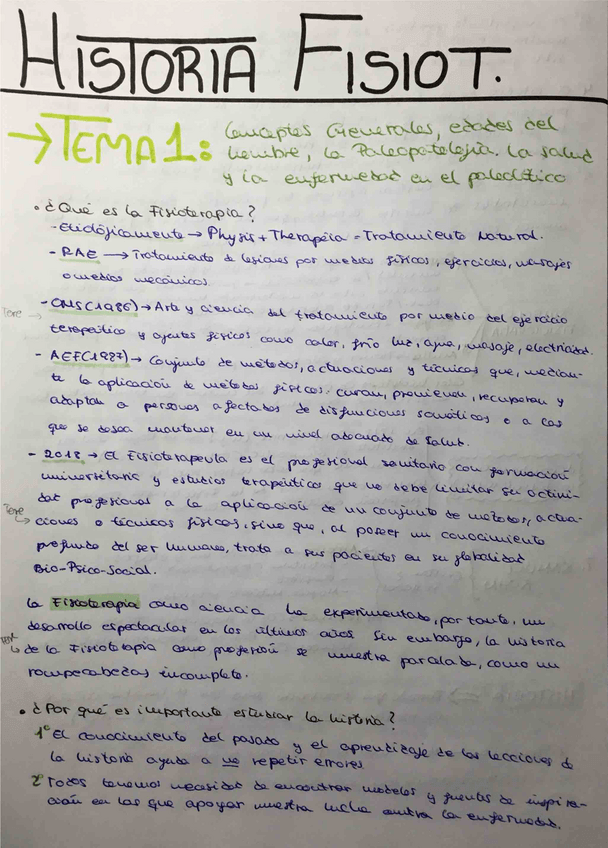 HISTORIA FISIOT.
→ TEMA 1: Conceptos Generales, edades del
hombre, la Paleopatología. La salud
y la enfermedad en el paleolítico
• ¿Qué es la Fisioterapia?
- Etiológicamente → Physis + Therapéia = Tratamiento Natural.
- RAE → Tratamiento de lesiones por medios físicos, ejercicios, masajes
o medios mecánicos.
- OMS (1986) → Arte y ciencia del tratamiento por medio del ejercicio
terapéutico y agentes físicos como calor, frío luz, agua, masaje, electricidad.
- AEF (1987) → Conjunto de métodos, actuaciones y técnicas que, median-
te la aplicación de métodos físicos, curan, previenen, recuperan y
adaptan a personas afectadas de disfunciones somáticas o a las
que se desea mantener en un nivel adecuado de salud.
- 2018 → El Fisioterapeuta es el profesional sanitario con formación
universitaria y estudios terapéuticos que no debe limitar su activi-
dad profesional a la aplicación de un conjunto de métodos, actua-
ciones o técnicas físicas, sino que, al poseer un conocimiento
profundo del ser humano, trata a sus pacientes en su globalidad
Bio-Psico-Social.
La Fisioterapia como ciencia ha experimentado, por tanto, un
desarrollo espectacular en los últimos años Sin embargo, la historia
de la Fisioterapia como profesión se muestra parcelada, como un
rompecabezas incompleto.
• ¿Por qué es importante estudiar la historia?
1º El conocimiento del pasado y el aprendizaje de las lecciones de
la historia ayuda a no repetir errores
2º Todos tenemos necesidad de encontrar modelos y fuentes de inspira-
ción en las que apoyar nuestra lucha contra la enfermedad.